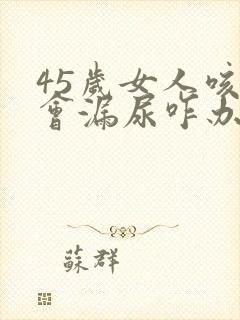 45歲女人咳
會漏尿咋办
蘇群